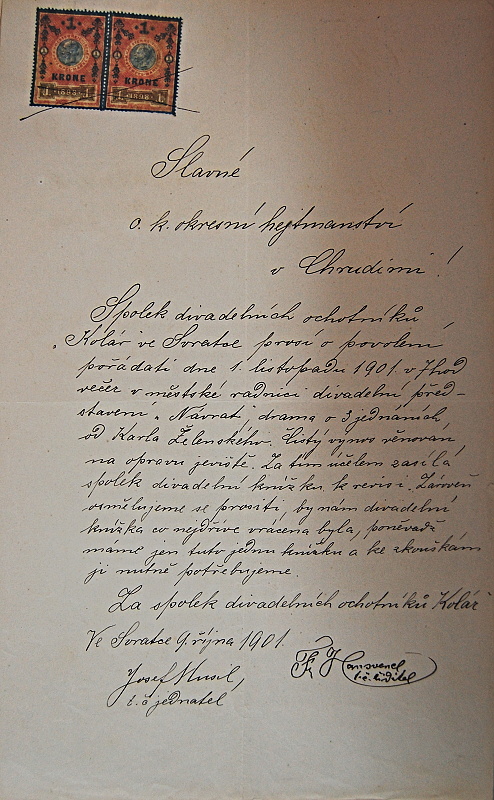 1 1
KRONE KRONE
1 1898 1 1 1898 1
Slavné
c. k. okresní hejtmanství
v Chrudimi!
Spolek divadelních ochotníků
„Kolár ve Svratce prosí o povolení
pořádati dne 1. listopadu 1901. v 7 hod
večer v městské radnici divadelní před-
stavení „Návrat" drama o 3 jednáních
od Karla Želenského. Čistý výnos věnován
na opravu jeviště. Za tím účelem zasílá
spolek divadelní knížku k revisi. Zároveň
osmělujeme se prositi, by nám divadelní
knížka co nejdříve vrácena byla, poněvadž
máme jen tuto jednu knížku a ke zkouškám
ji nutně potřebujeme.
Za spolek divadelních ochotníků Kolár
Ve Svratce 9. října 1901.
Josef Musil,
t. č. jednatel
Fr. J.
t. č. ředitel